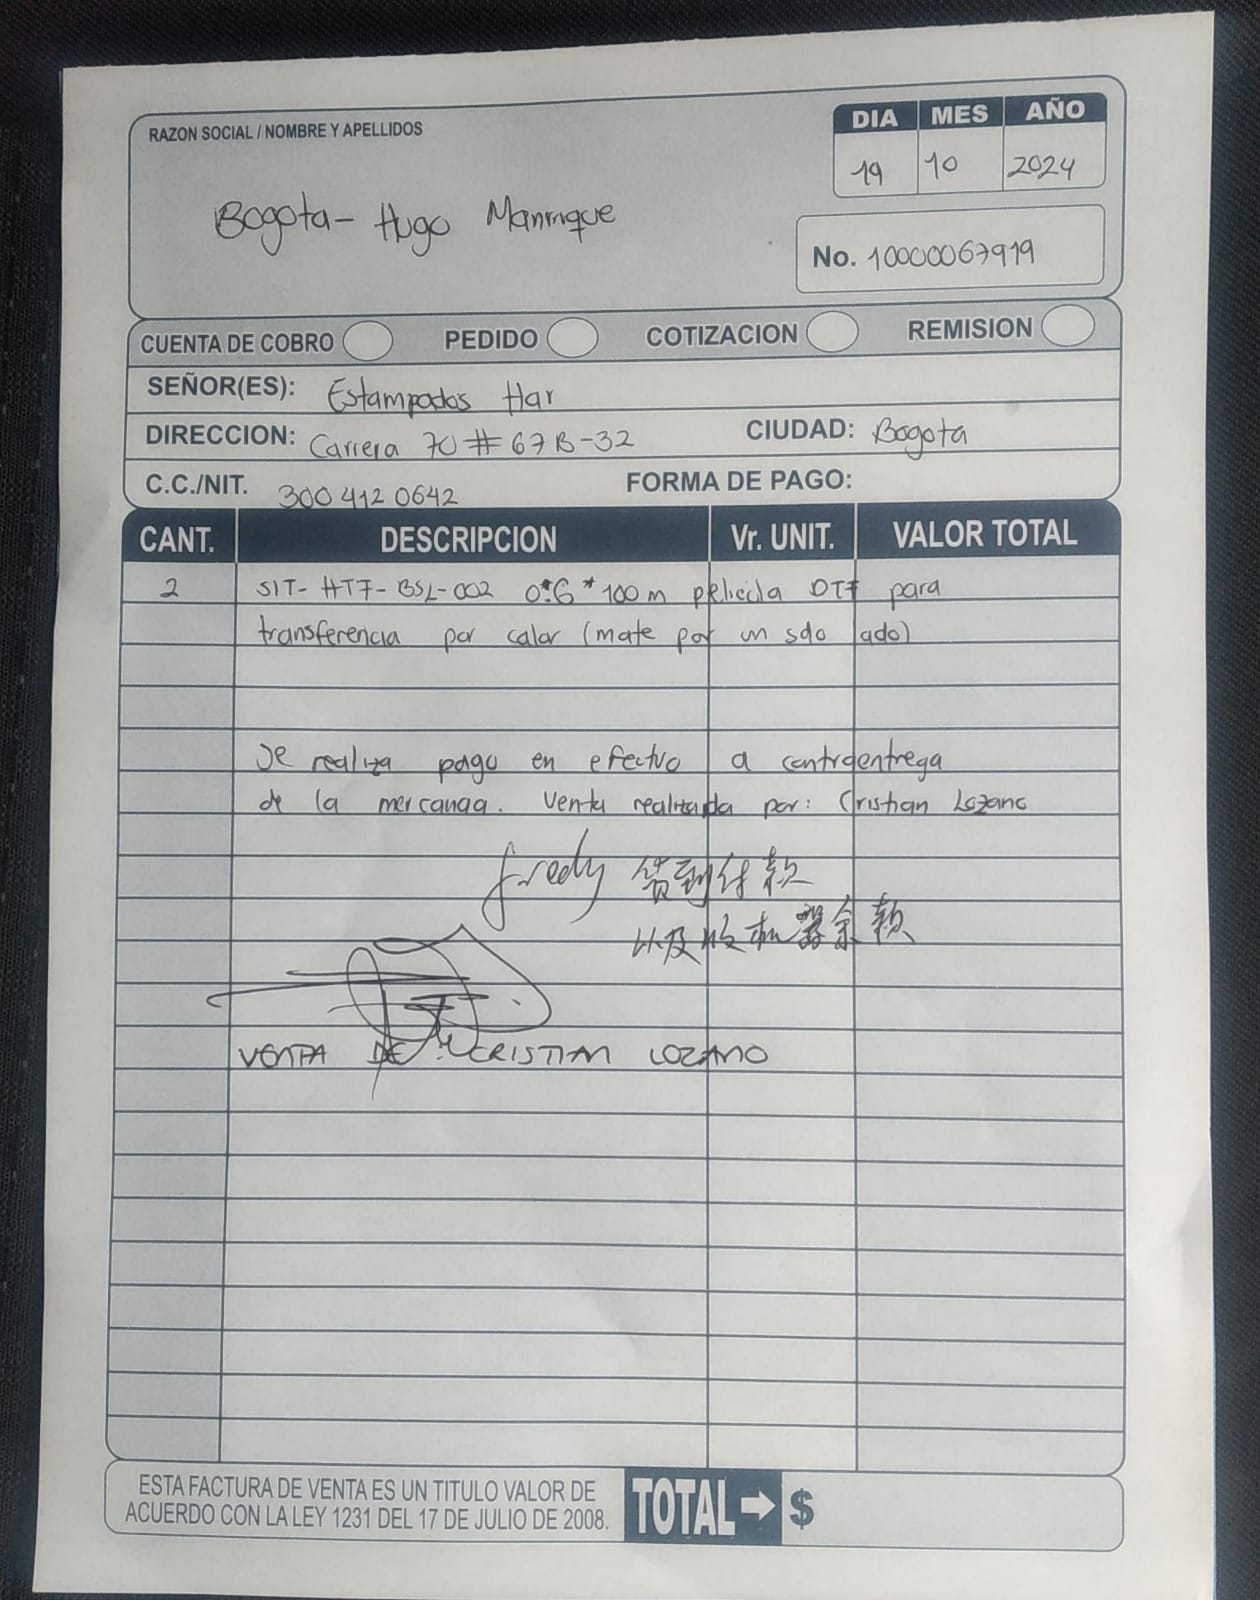 RAZON SOCIAL / NOMBRE Y APELLIDOS
DIA MES AÑO
19 10 2024
Bogota- Hugo Manrique
No. 10000067919
CUENTA DE COBRO PEDIDO COTIZACION REMISION
SEÑOR(ES): Estampados Har
DIRECCION: Carrera 70 # 67B-32 CIUDAD: Bogota
C.C./NIT. 300 412 0642 FORMA DE PAGO:
CANT. DESCRIPCION Vr. UNIT. VALOR TOTAL
2 SIT- HTF- BSL-002 0.6 * 100 m pelicula DTF para
transferencia por calor (mate por un solo lado)
Se realiza pago en efectivo a contraentrega
de la mercancia. Venta realizada por: Cristian Lozano
fredy 货到付款
以及收机器余款
VENTA DE: CRISTIAN LOZANO
ESTA FACTURA DE VENTA ES UN TITULO VALOR DE
ACUERDO CON LA LEY 1231 DEL 17 DE JULIO DE 2008.
TOTAL → $